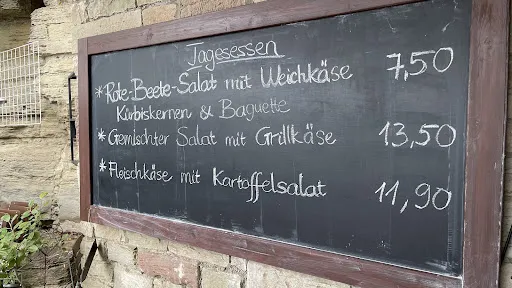 Tagesessen
* Rote-Beete-Salat mit Weichkäse 7,50
Kürbiskernen & Baguette
* Gemischter Salat mit Grillkäse 13,50
* Fleischkäse mit Kartoffelsalat 11,90